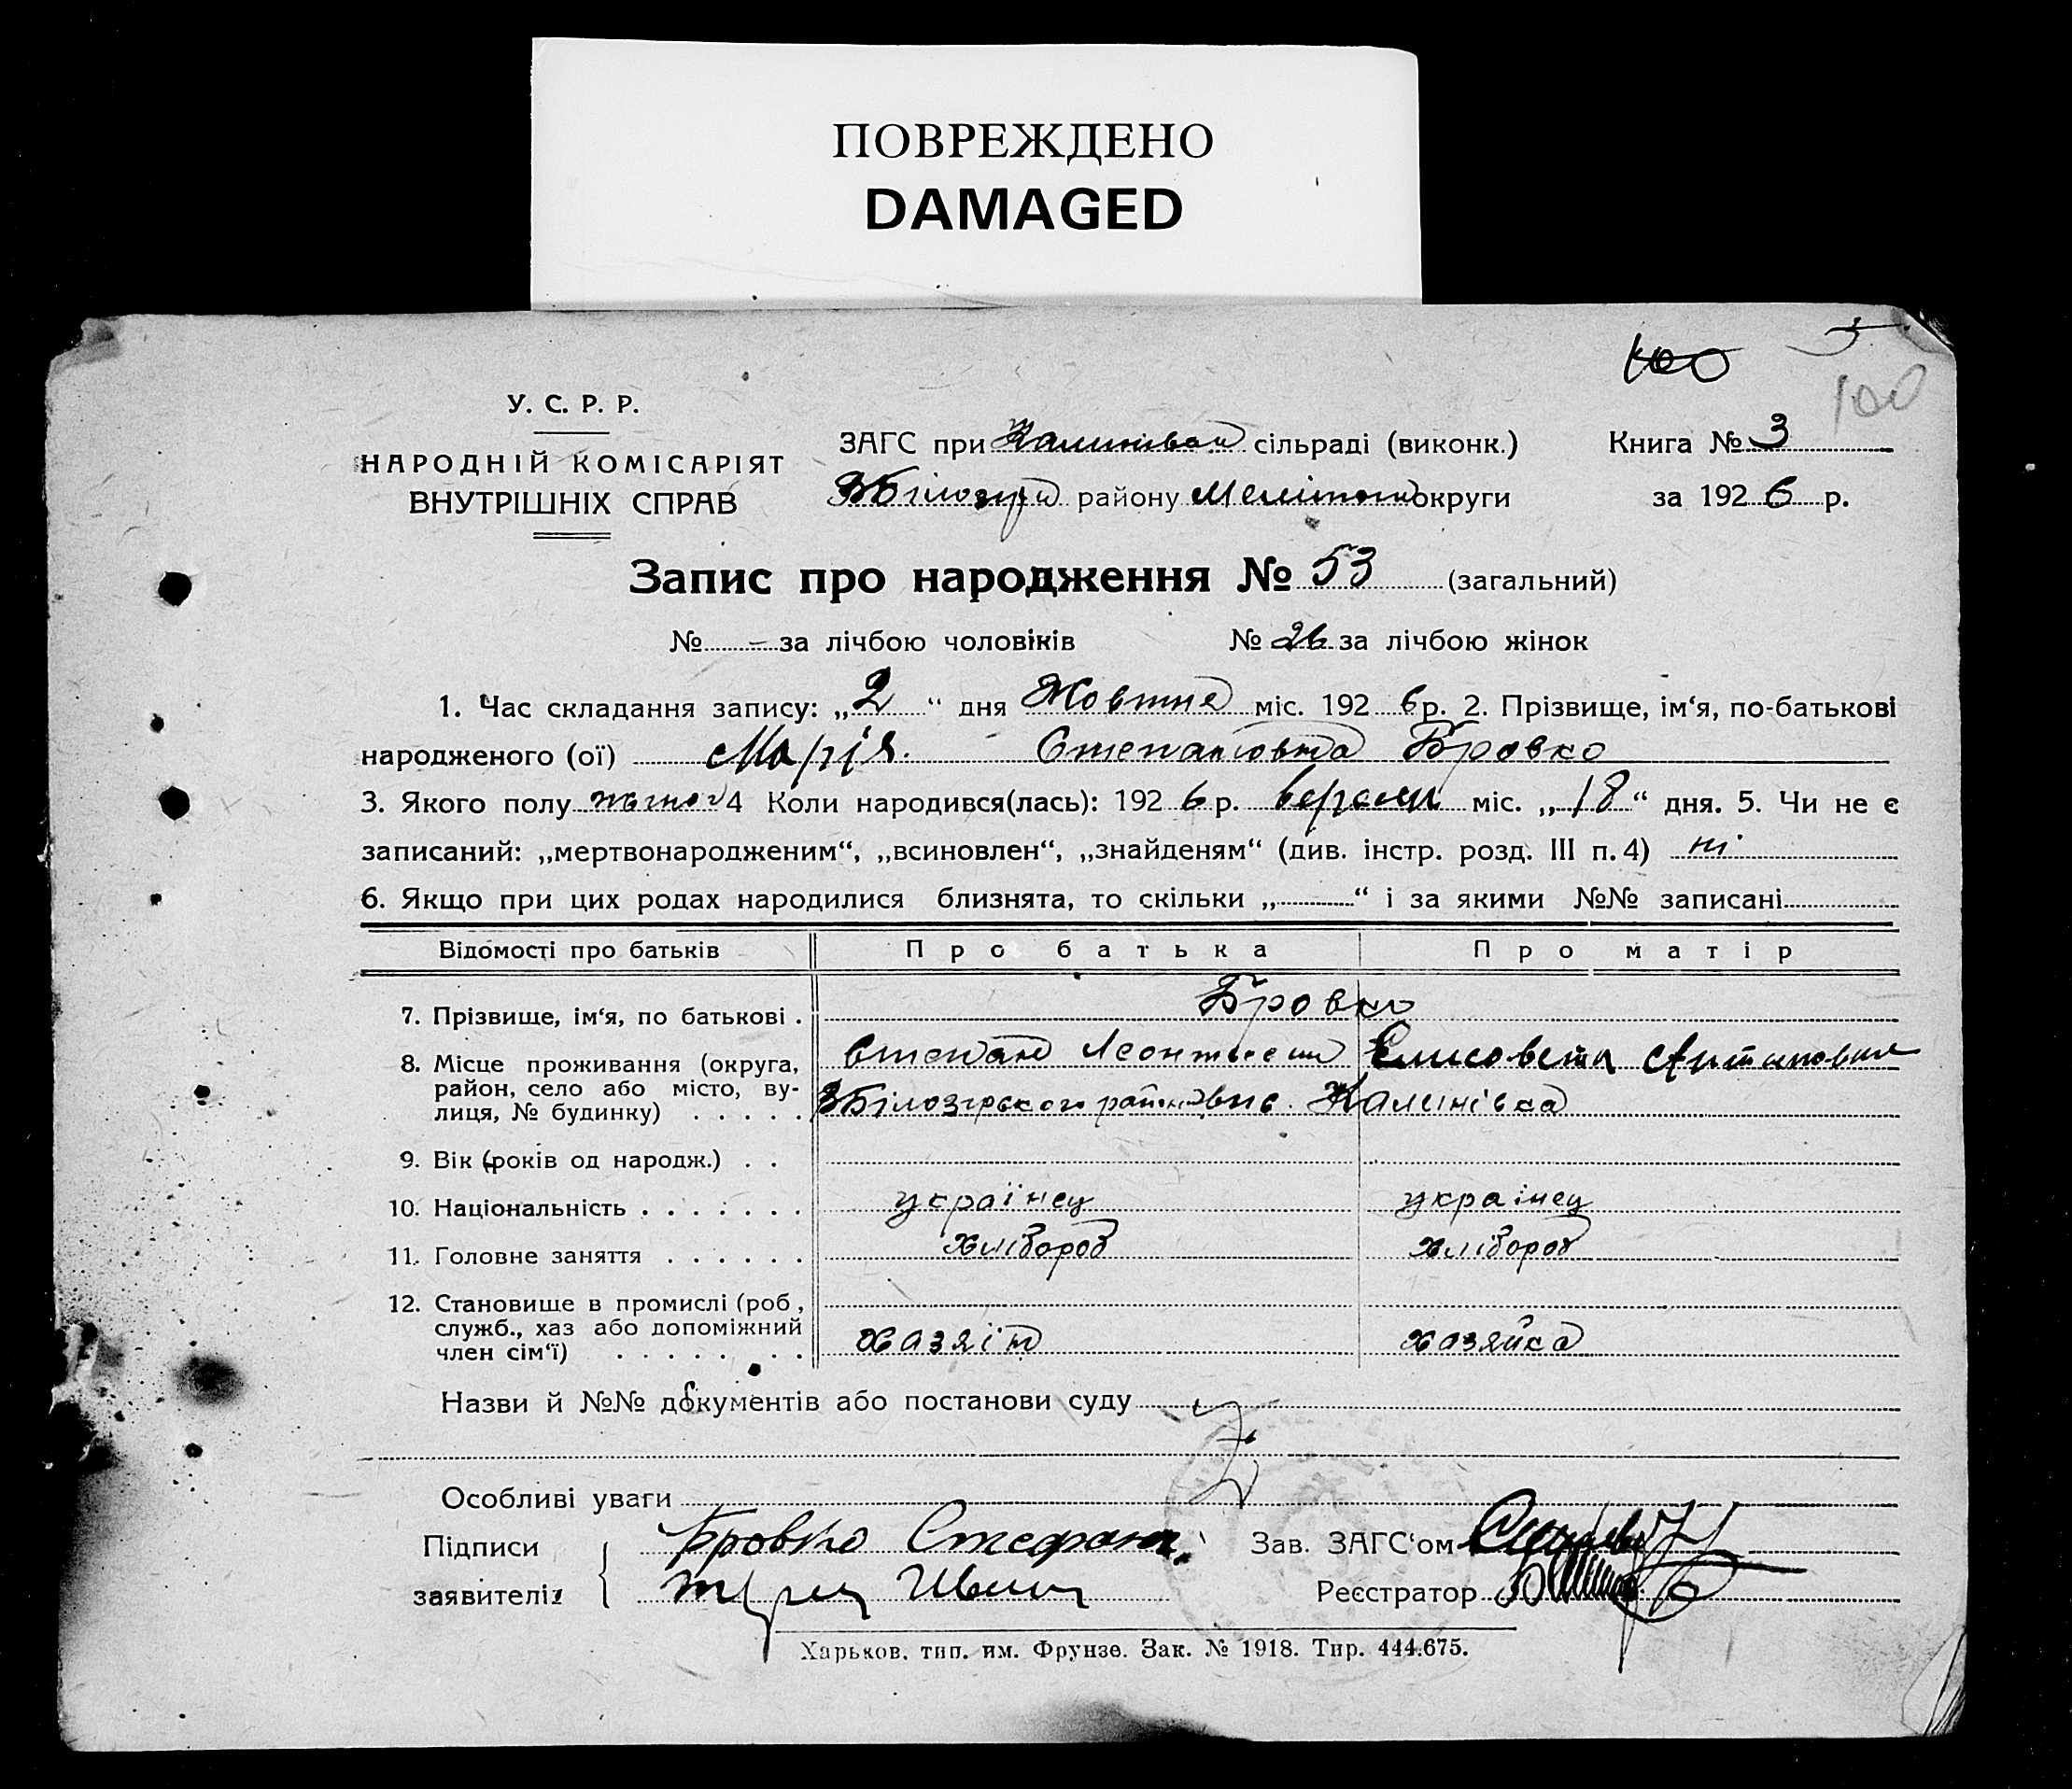 ПОВРЕЖДЕНО
DAMAGED
100 5
100
У. С. Р. Р.
НАРОДНІЙ КОМІСАРІЯТ
ВНУТРІШНІХ СПРАВ
ЗАГС при сільраді (виконк.) Книга № 3
району округи за 1926 р.
Запис про народження № 53 (загальний)
№ - за лічбою чоловіків № 26 за лічбою жінок
1. Час складання запису: „2“ дня Жовтня міс. 1926 р. 2. Прізвище, ім‘я, по-батькові
народженого (ої) Марія Степановна Бровко
3. Якого полу 4 Коли народився(лась): 1926 р. міс. „18“ дня. 5. Чи не є
записаний: „мертвонародженим“, „всиновлен“, „знайденям“ (див. інстр. розд. III п. 4) ні
6. Якщо при цих родах народилися близнята, то скільки „ “ і за якими №№ записані
Відомості про батьків Про батька Про матір
7. Прізвище, ім‘я, по батькові . Бровко
Степан Елисовета
8. Місце проживання (округа, район, село або місто, ву-лиця, № будинку) . . . . . Калинівка
9. Вік (років од народж.) . .
10. Національність . . . . . . . українец українец
11. Головне заняття . . . . . . хлібороб хлібороб
12. Становище в промислі (роб., служб., хаз або допоміжний член сім‘ї) . . . . . . . . хазяїн хазяйка
Назви й №№ документів або постанови суду
Особливі уваги
Підписи Бровко Стефан Зав. ЗАГС‘ом
заявителів Реєстратор
Харьков, тип. им. Фрунзе. Зак. № 1918. Тир. 444.675.